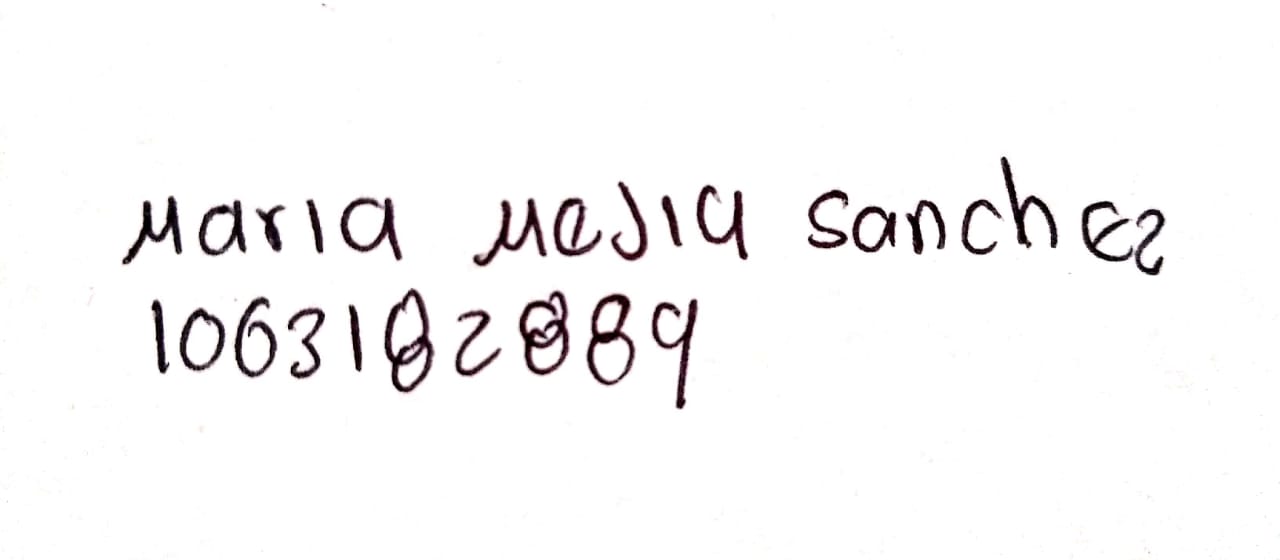 Maria Mejia Sanchez
1063182889